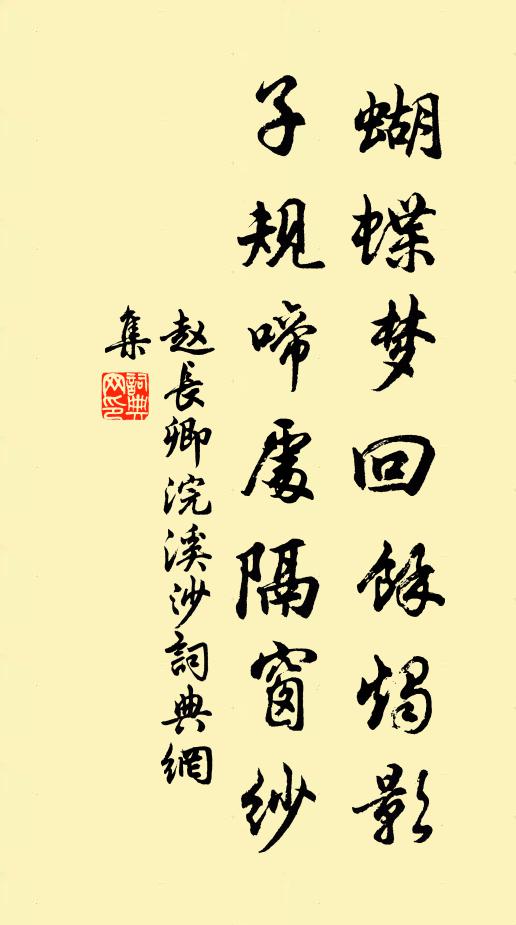 蝴蝶梦回馀烛影
子规啼处隔窗纱
赵長卿浣溪沙詞典網
集
詞典
网印